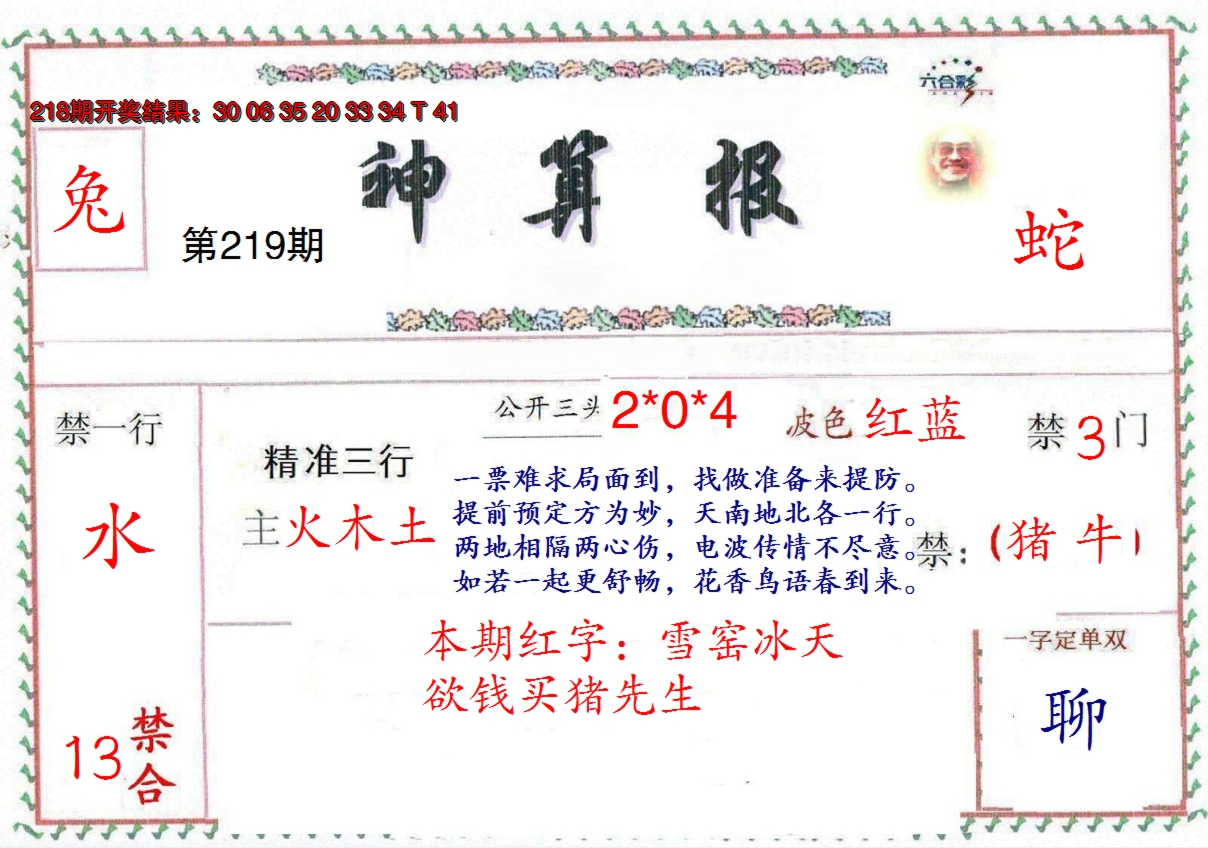 六合彩
218期开奖结果：30 06 35 20 33 34 T 41
兔
神算报
第219期
蛇
禁一行
水
13
禁合
精准三行
主火木土
公开三头
2*0*4
波色红蓝
禁3门
一票难求局面到，找做准备来提防。
提前预定方为妙，天南地北各一行。
两地相隔两心伤，电波传情不尽意。
如若一起更舒畅，花香鸟语春到来。
禁：（猪 牛）
本期红字：雪窑冰天
欲钱买猪先生
一字定单双
聊